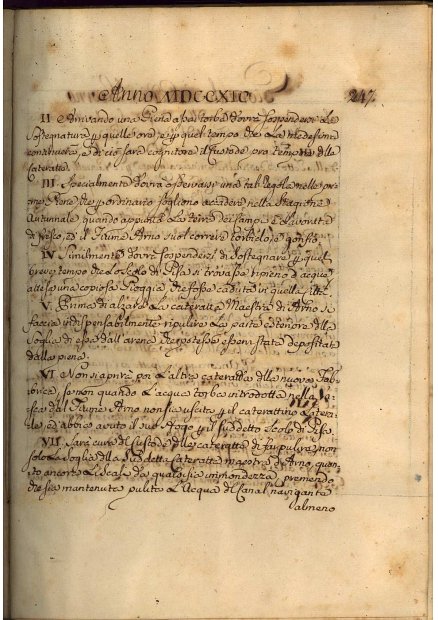 Anno MDCCXIC 247.
II Arrivando una Piena d'acqua torba dovrà sospendersi la
Sostegnatura p quelle ore, e p quel tempo che la medesima
continuerà, e di ciò sarà cognitore il Custode pro tempore delle
Cateratte.
III. Specialmente dovrà osservarsi una tal Regola nelle pri
me Piene, che p ordinario sogliono accadere nella Stagione
Autunnale quando appunto la terra dei campi è lavorata
di fresco, ed il Fiume Arno suol correre torbido, e gonfio.
IV. Similmente dovrà sospendersi di Sostegnare p quel
breve tempo che lo Scolo di Pisa si trova ripieno d'acque
attesa una copiosa Pioggia che fosse caduta in quella Città.
V. Prima di alzare la Cateratta Maestra di Arno si
faccia indispensabilmente ripulire la parte esteriore della
Soglia di essa dall'arena che potesse esservi stata depositata
dalla piena.
VI. Non si aprirà poi l'altra cateratta della nuova Fab
brica, se non quando l'acqua torba introdotta nella
dal Fiume Arno non sia uscita p il caterattino Latera
le, ed abbia avuto il suo sfogo p il suddetto Scolo di Pisa.
VII Sarà cura del Custode delle cateratte di far pulire non
solo la Soglia della suddetta cateratta maestra di Arno, quan
to ancora le Scale da qualsisia immondezza, premendo
che sia mantenuta pulita l'Acqua del Canal navigante
almeno